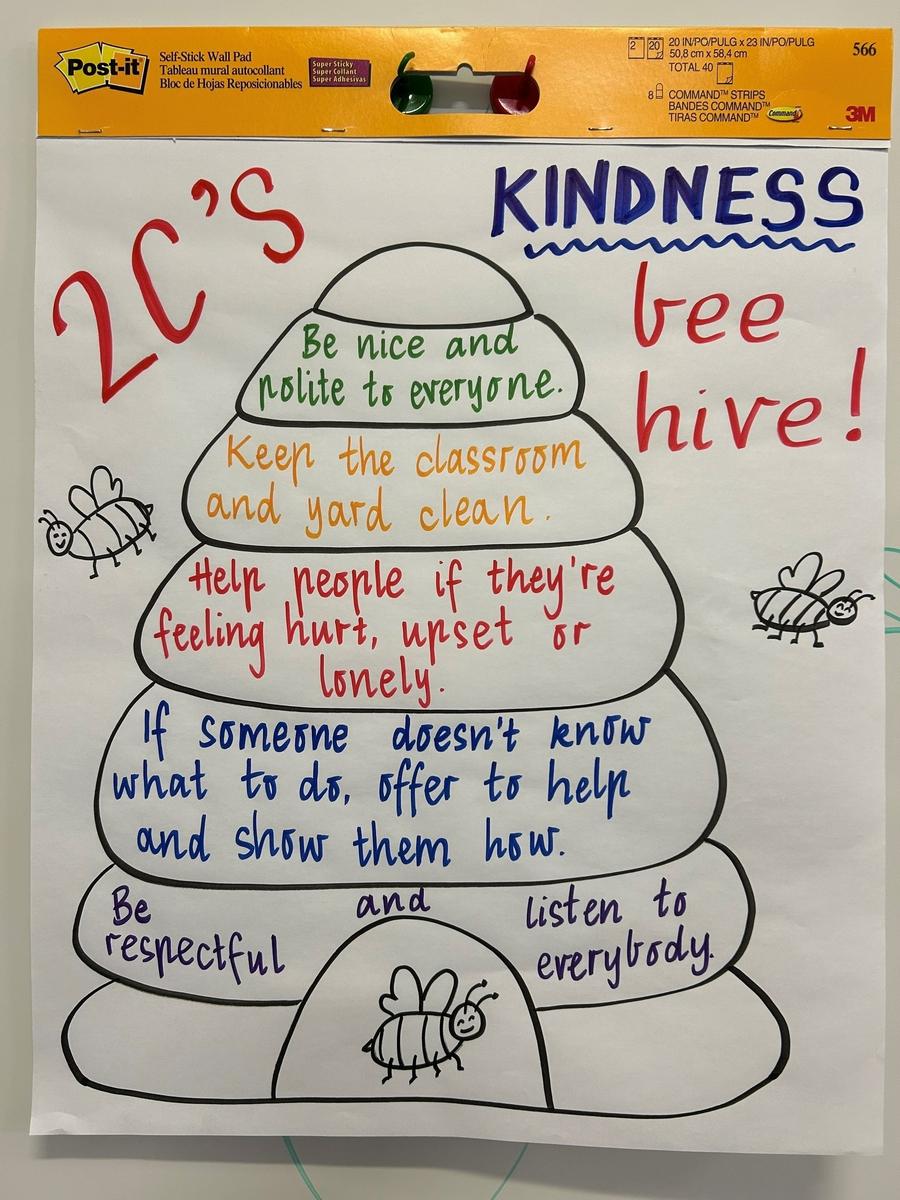 Post-it
Self-Stick Wall Pad
Tableau mural autocollant
Bloc de Hojas Reposicionables
Super Sticky
Super Collant
Super Adhesivas
2 20
20 IN/PO/PULG x 23 IN/PO/PULG
50,8 cm x 58,4 cm
TOTAL 40
8
COMMAND™ STRIPS
BANDES COMMAND™
TIRAS COMMAND™
Command
566
3M
2C'S
KINDNESS
bee
hive!
Be nice and
polite to everyone.
Keep the classroom
and yard clean.
Help people if they're
feeling hurt, upset or
lonely.
If someone doesn't know
what to do, offer to help
and show them how.
Be respectful
and
listen to
everybody.